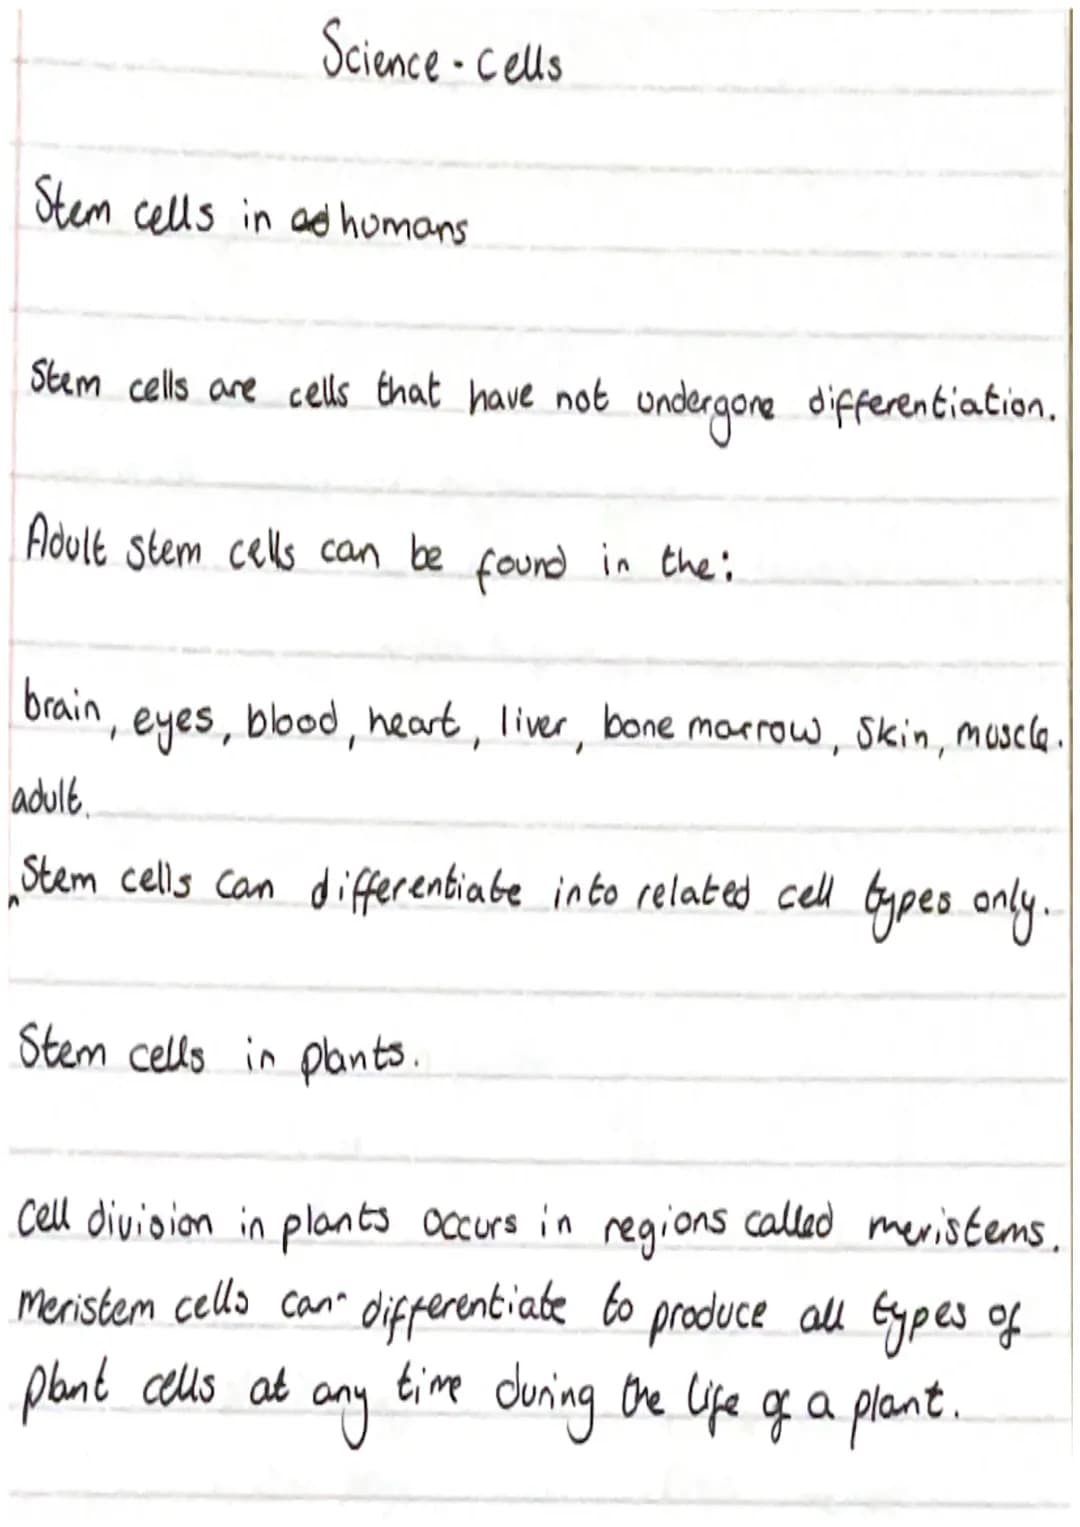 Science - cells
Stem cells in humans
Stem cells are cells that have not undergone differentiation.
Adult stem cells can be found in the:
brain, eyes, blood, heart, liver, bone marrow, skin, muscle.
adult.
Stem cells can differentiate into related cell types only.
Stem cells in plants.
Cell division in plants occurs in regions called meristems.
Meristem cells can differentiate to produce all types of
plant cells at any time during the life of a plant.